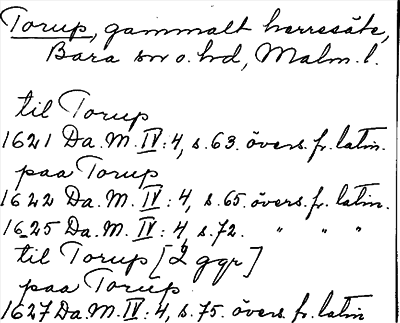 Torup, gammalt herresäte,
Bara sn o. hd, Malm. l.
til Torup
1621 Da. M. IV: 4, s. 63. övers. fr. latin.
paa Torup
1622 Da. M. IV: 4, s. 65. övers. fr. latin.
1625 Da. M. IV: 4, s. 72. " " "
til Torup [2 ggr]
paa Torup
1627 Da. M. IV: 4, s. 75. övers. fr. latin